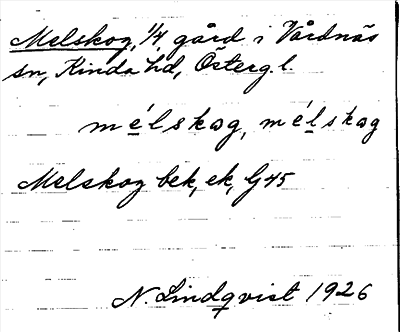 Melskog, 1/4, gård i Vårdnäs
sn, Kinda hd, Österg. l.
mélskog, mélskog
Melskog bek, ek, G45
N. Lindqvist 1926